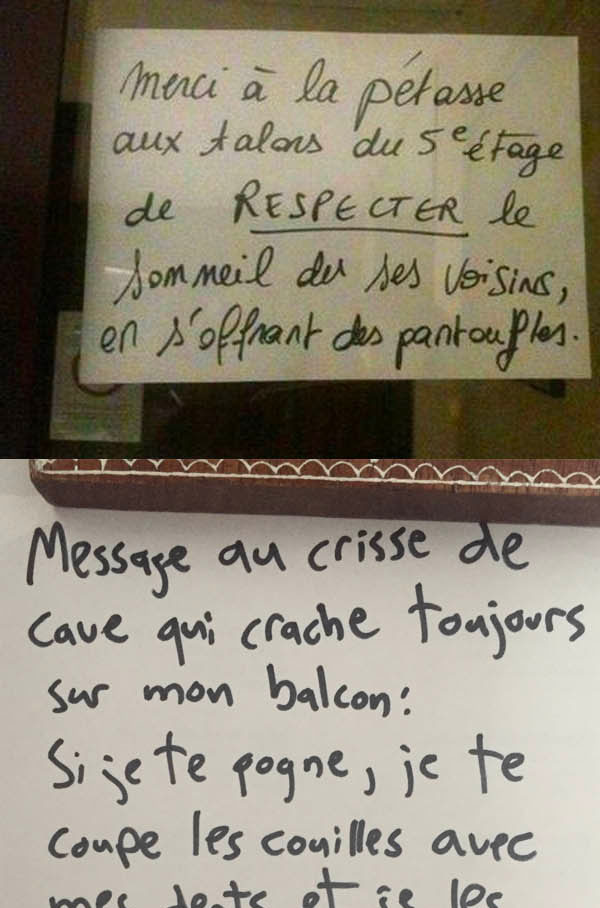 Merci à la pétasse
aux talons du 5e étage
de RESPECTER le
sommeil du ses voisins,
en s'offrant des pantoufles.
Message au crisse de
cave qui crache toujours
sur mon balcon:
Si je te pogne, je te
coupe les couilles avec
mes dents et je les